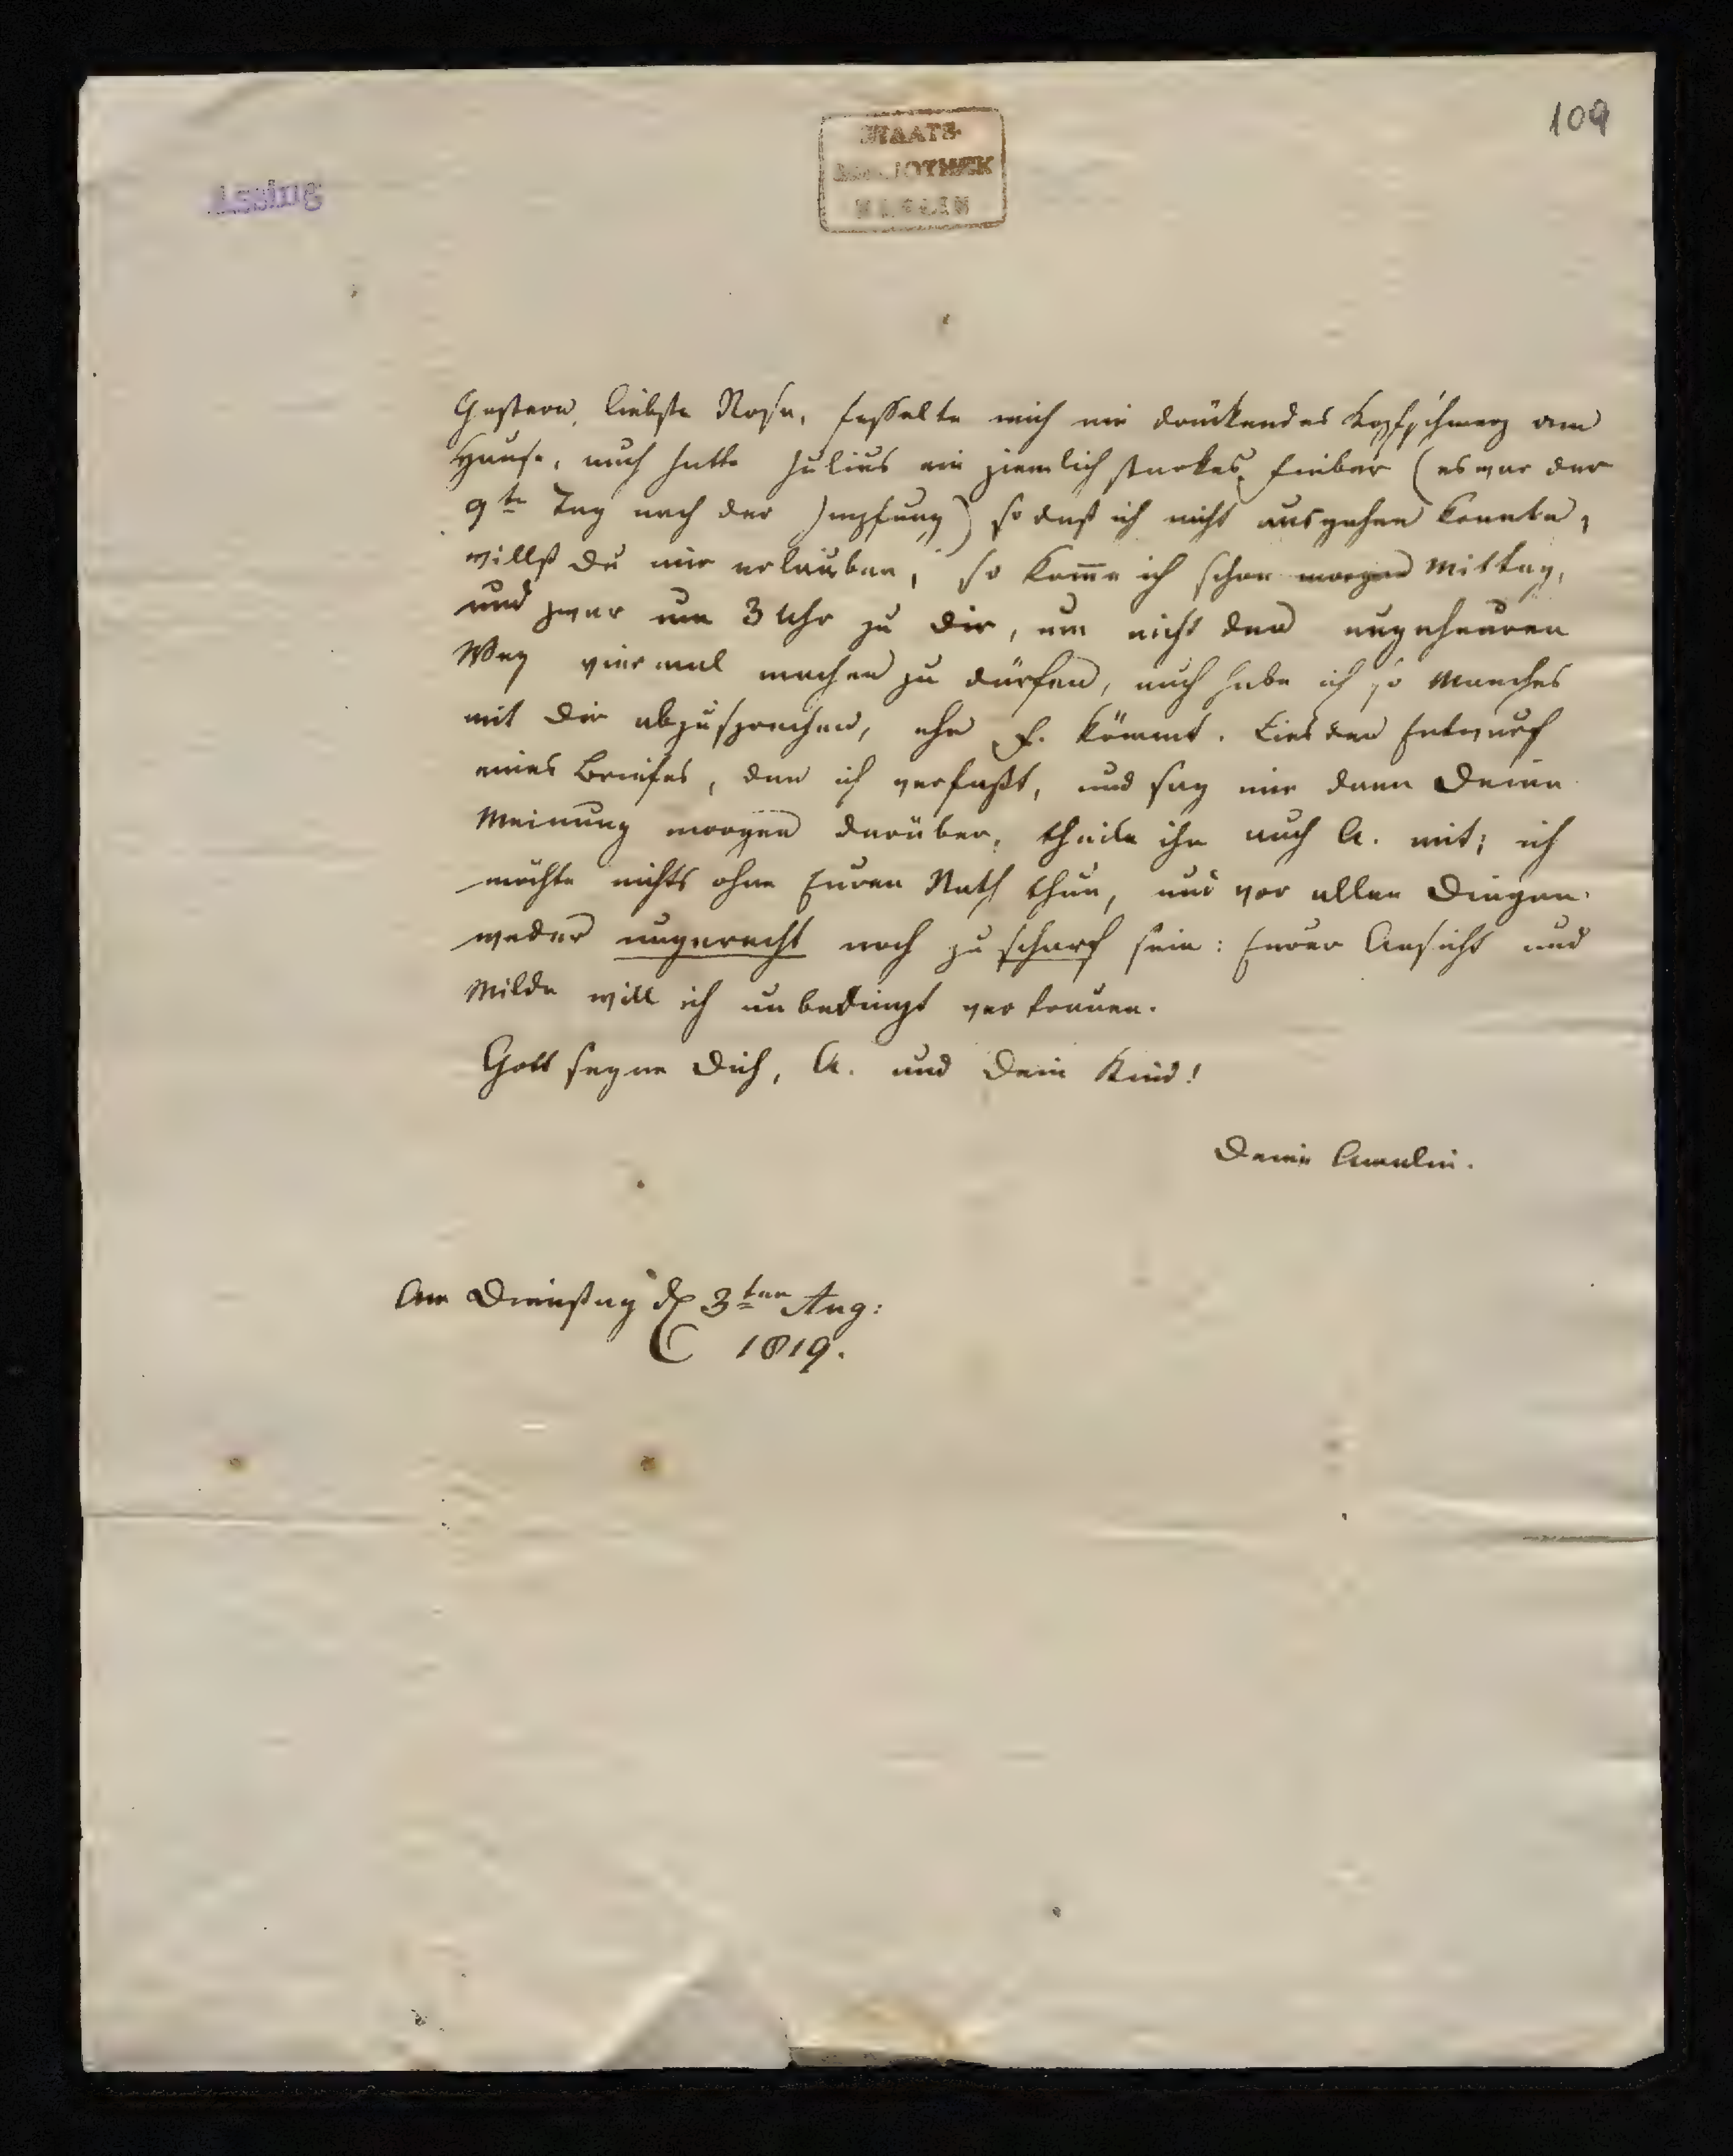 109
Assing
STAATS-
BIBLIOTHEK
BERLIN
Gestern, liebste Rosa, fesselte mich ein drückendes Kopfschmerz am
Hause, auch hatte Julius ein ziemlich starkes Fieber (es war der
9te Tag nach der Impfung) so daß ich nicht ausgehen konnte,
willst Du mir erlauben, so kom̅e ich schon morgen Mittag,
und zwar um 3 Uhr zu Dir, um nicht den ungeheuren
Weg viermal machen zu dürfen, auch habe ich so Manches
mit Dir abzusprechen, ehe F. kömmt. Lies den Entwurf
eines Briefes, den ich verfaßt, und sag mir dann Deine
Meinung morgen darüber, theile ihn auch A. mit; ich
möchte nichts ohne Euren Rath thun, und vor allen Dingen
weder ungerecht noch zu scharf sein: Eurer Ansicht und
Milde will ich unbedingt vertrauen.
Gott segne Dich, A. und Dein Kind!
Deine Amalia.
Am Dienstag d. 3ten Aug:
1819.